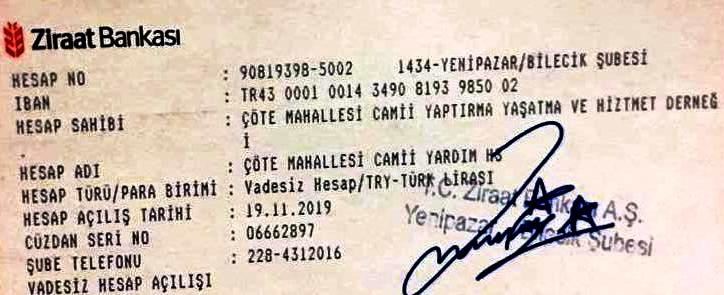 Ziraat Bankası
HESAP NO : 90819398-5002 1434-YENİPAZAR/BİLECİK ŞUBESİ
IBAN : TR43 0001 0014 3490 8193 9850 02
HESAP SAHİBİ : ÇÖTE MAHALLESİ CAMİİ YAPTIRMA YAŞATMA VE HİZTMET DERNEĞ
İ
HESAP ADI : ÇÖTE MAHALLESİ CAMİİ YARDIM HS
HESAP TÜRÜ/PARA BİRİMİ : Vadesiz Hesap/TRY-TÜRK LİRASI
HESAP AÇILIŞ TARİHİ : 19.11.2019
CÜZDAN SERİ NO : 06662897
ŞUBE TELEFONU : 228-4312016
VADESİZ HESAP AÇILIŞI
T.C. Ziraat Bankası A.Ş.
Yenipazar Bilecik Şubesi